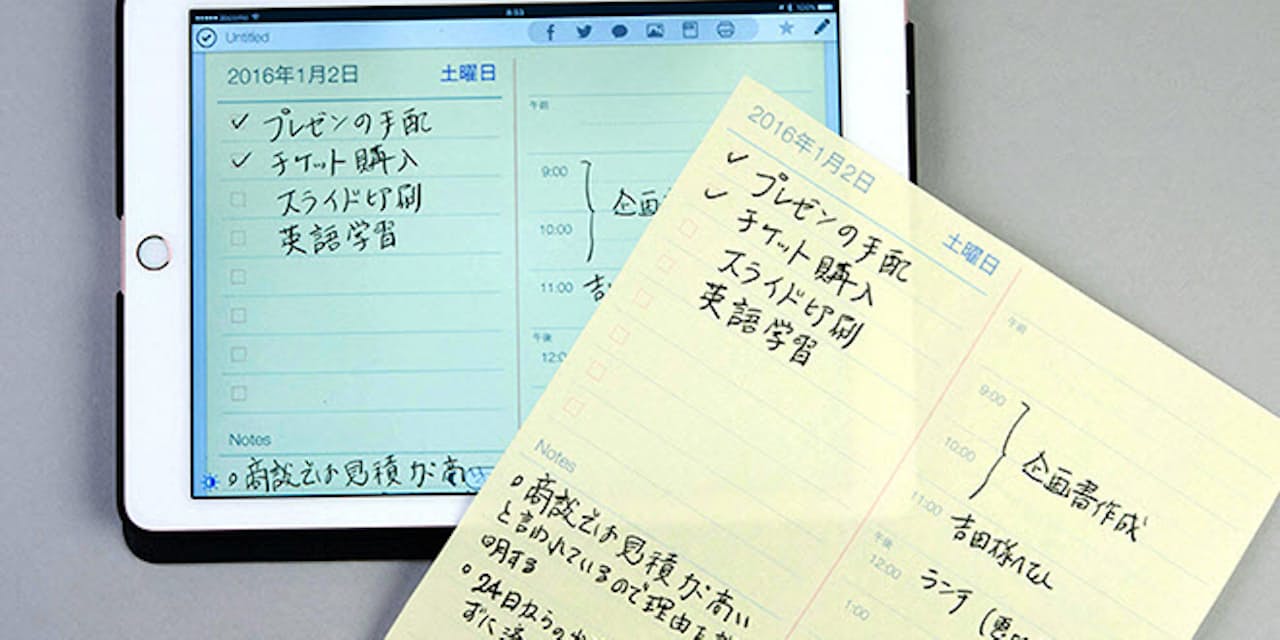 docomo
8:53
100%
Untitled
2016年1月2日 土曜日
プレゼンの手配
チケット購入
スライド印刷
英語学習
午前
9:00
企画
10:00
11:00
吉
午後
12:0
Notes
商談では見積が高い
2016年1月2日
土曜日
プレゼンの手配
チケット購入
スライド印刷
英語学習
午前
9:00
10:00
企画書作成
11:00
吉田様へ
午後
12:00
ランチ
1:00
Notes
商談では見積が高い
と言われているので理由を
明する
24日
ずに